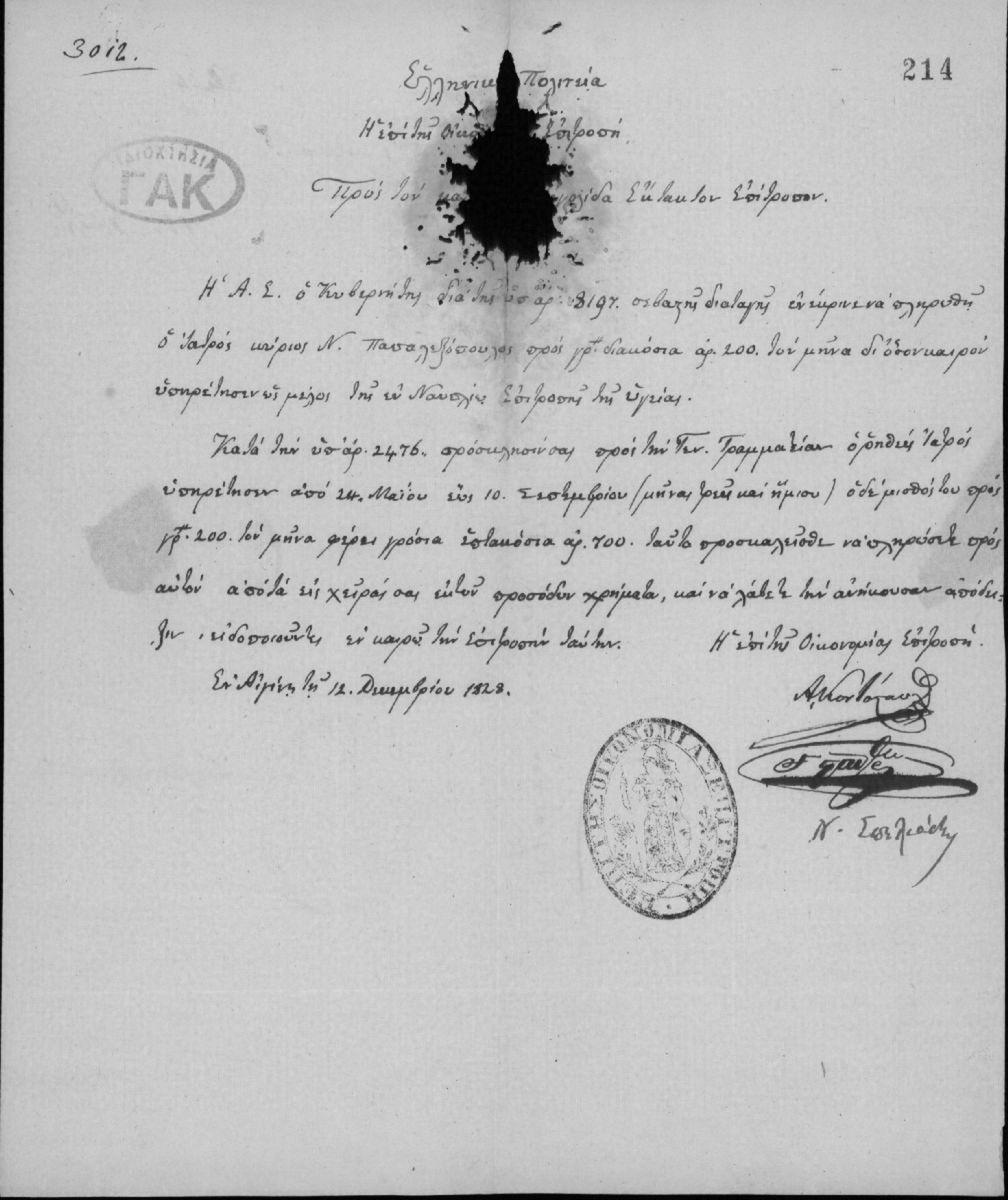 3012.
214
Ἑλληνικ Πολιτεία
Ἡ ἐπὶ τῆς Οἰκο Ἐπιτροπή
ΙΔΙΟΚΤΗΣΙΑ
ΓΑΚ
Πρὸς τὸν κα γολίδα Ἔκτακτον Ἐπίτροπον.
Ἡ Α. Ε. ὁ Κυβερνήτης διὰ τῆς ὑπ' ἀρ. 8197. σεβαστῆς διαταγῆς ἐνέκρινε νὰ πληρωθῇ
ὁ ἰατρός κύριος Ν. Παπαλεξόπουλος πρὸς γρ. διακόσια ἀρ. 200. τὸν μῆνα δι' ὅσον καιρὸν
ὑπηρέτησεν ὡς μέλος τῆς ἐν Ναυπλίῳ Ἐπιτροπῆς τῆς ὑγείας.
Κατὰ τὴν ὑπ' ἀρ. 2476. πρόσκλησίν σας πρὸς τὴν Γεν. Γραμματείαν ὁ ῥηθεὶς Ἰατρός
ὑπηρέτησεν ἀπὸ 24. Μαΐου ἕως 10. Σεπτεμβρίου (μῆνας τρεῖς καὶ ἥμισυ) ὁ δὲ μισθός του πρὸς
γρ. 200. τὸν μῆνα φέρει γρόσια ἑπτακόσια ἀρ. 700. ταῦτα προσκαλεῖσθε νὰ πληρώσετε πρὸς
αὐτὸν ἀπὸ τὰ εἰς χεῖράς σας ἐκ τῶν προσόδων χρήματα, καὶ νὰ λάβετε τὴν ἀνήκουσαν ἀπόδει-
ξιν εἰδοποιοῦντες ἐν καιρῷ τὴν Ἐπιτροπὴν ταύτην.
Ἡ ἐπὶ τῆς Οἰκονομίας Ἐπιτροπή.
Ἐν Αἰγίνῃ τῇ 12. Δεκεμβρίου 1828.
Α. Κοντόσταυλος
Η ΕΠΙ ΤΗΣ ΟΙΚΟΝΟΜΙΑΣ ΕΠΙΤΡΟΠΗ
Ν. Σπηλιάδης